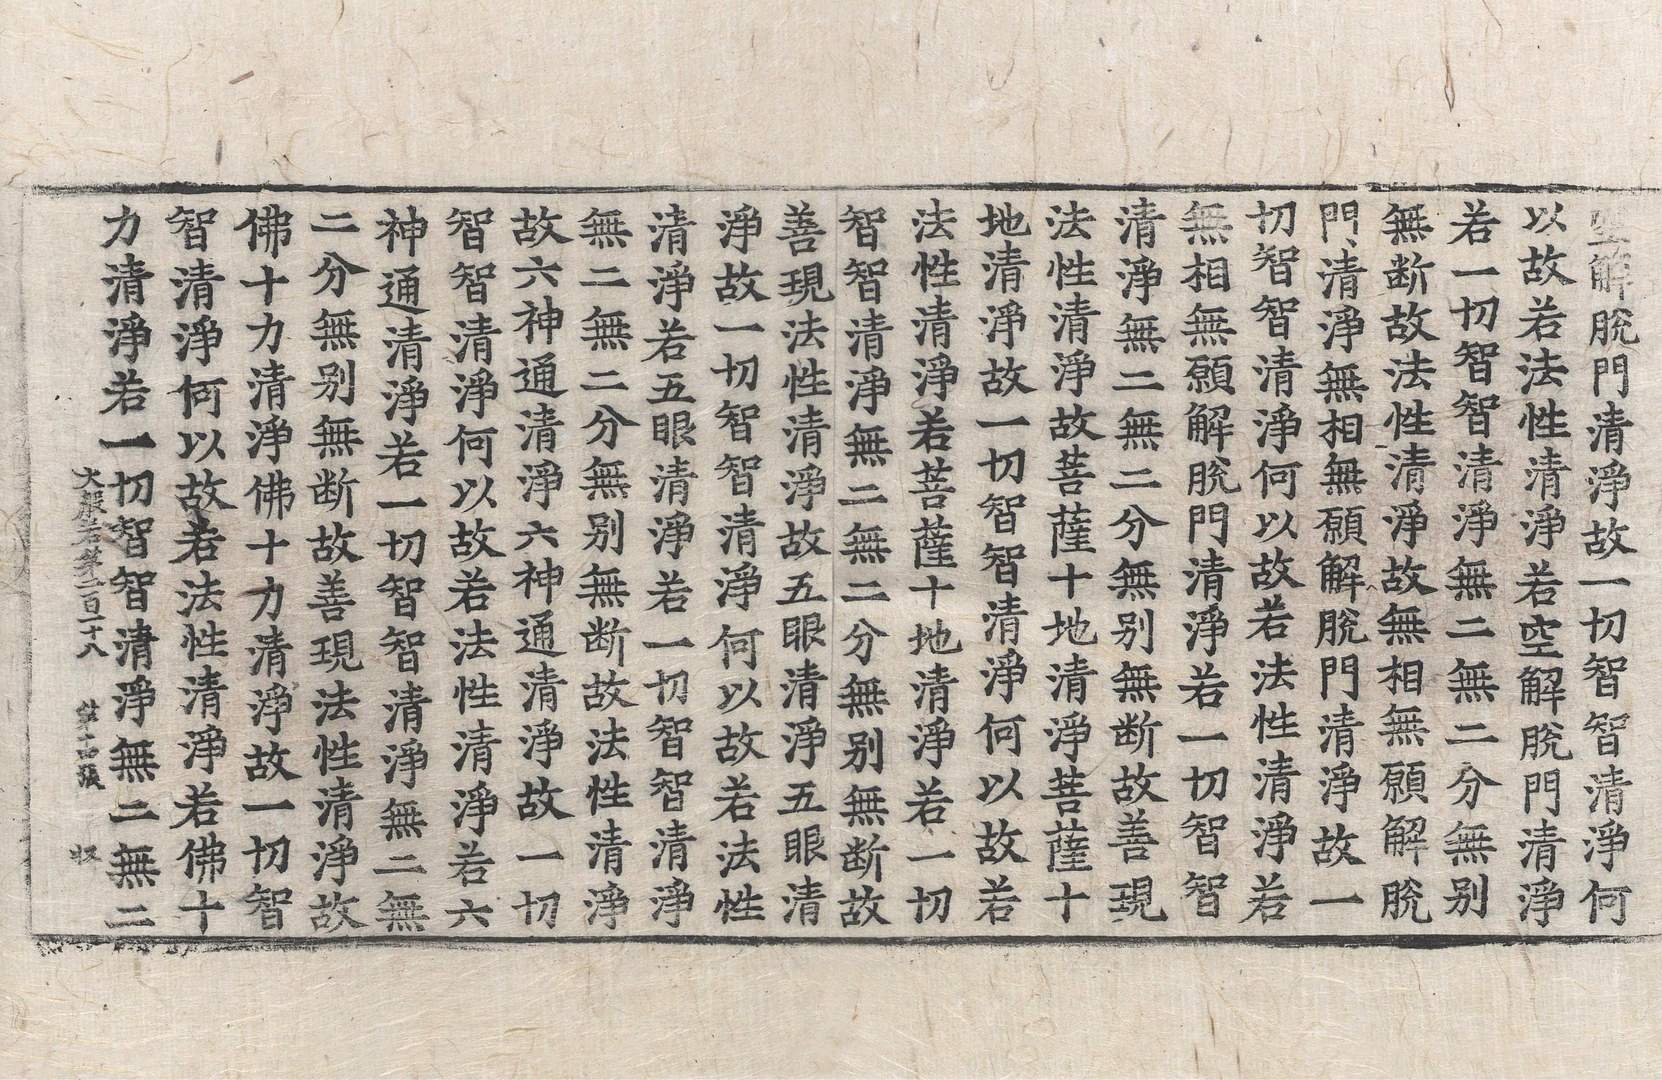 空解脫門清淨故一切智智清淨何
以故若法性清淨若空解脫門清淨
若一切智智清淨無二無二分無別
無断故法性清淨故無相無願解脫
門清淨無相無願解脫門清淨故一
切智智清淨何以故若法性清淨若
無相無願解脫門清淨若一切智智
清淨無二無二分無別無断故善現
法性清淨故菩薩十地清淨菩薩十
地清淨故一切智智清淨何以故若
法性清淨若菩薩十地清淨若一切
智智清淨無二無二分無別無断故
善現法性清淨故五眼清淨五眼清
淨故一切智智清淨何以故若法性
清淨若五眼清淨若一切智智清淨
無二無二分無別無断故法性清淨
故六神通清淨六神通清淨故一切
智智清淨何以故若法性清淨若六
神通清淨若一切智智清淨無二無
二分無別無断故善現法性清淨故
佛十力清淨佛十力清淨故一切智
智清淨何以故若法性清淨若佛十
力清淨若一切智智清淨無二無二
大般若第二百二十八 第十四張